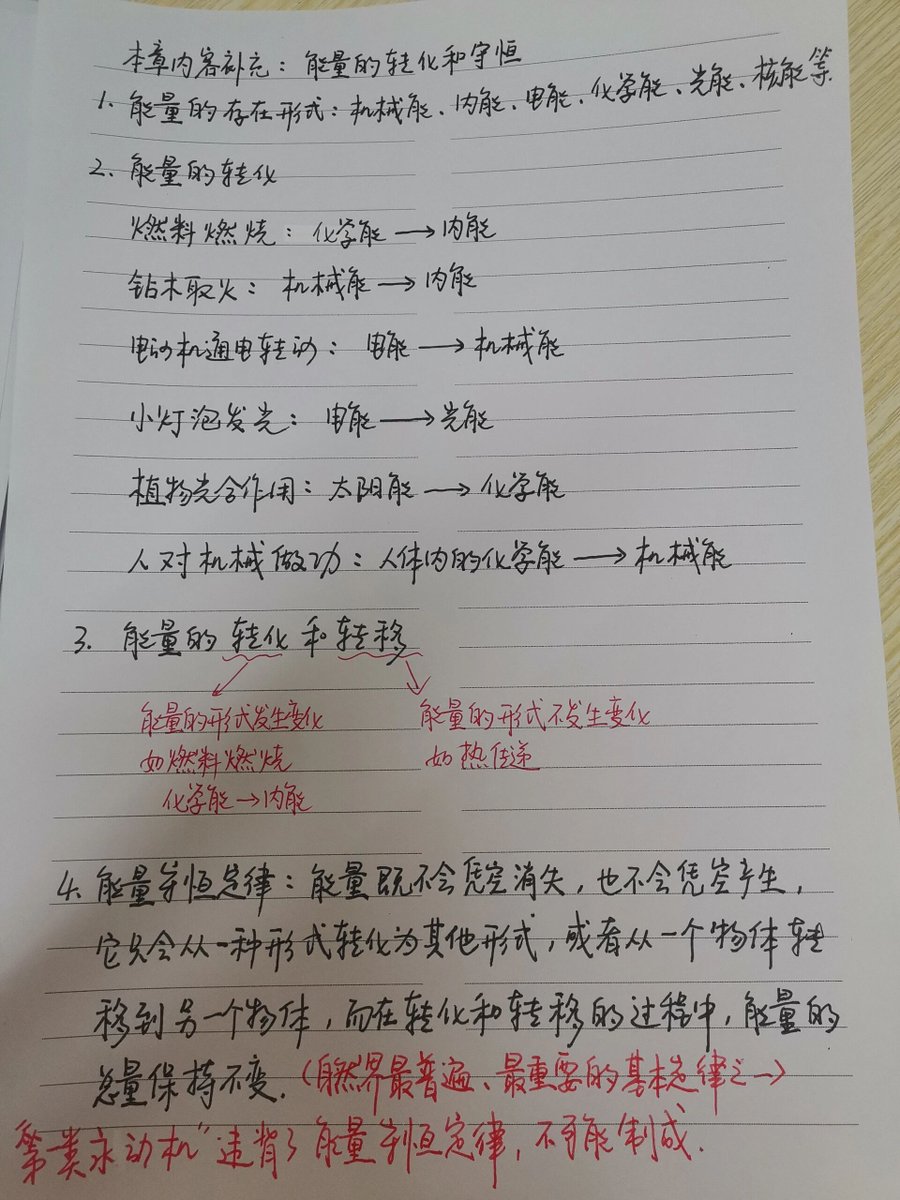 本章内容补充：能量的转化和守恒
1. 能量的存在形式：机械能、内能、电能、化学能、光能、核能等.
2. 能量的转化
燃料燃烧：化学能→内能
钻木取火：机械能→内能
电动机通电转动：电能→机械能
小灯泡发光：电能→光能
植物光合作用：太阳能→化学能
人对机械做功：人体内的化学能→机械能
3. 能量的转化和转移
能量的形式发生变化
如燃料燃烧
化学能→内能
能量的形式不发生变化
如热传递
4. 能量守恒定律：能量既不会凭空消失，也不会凭空产生，
它只会从一种形式转化为其他形式，或者从一个物体转
移到另一个物体，而在转化和转移的过程中，能量的
总量保持不变.（自然界最普遍、最重要的基本定律之一）
第类永动机”违背了能量守恒定律，不可能制成.